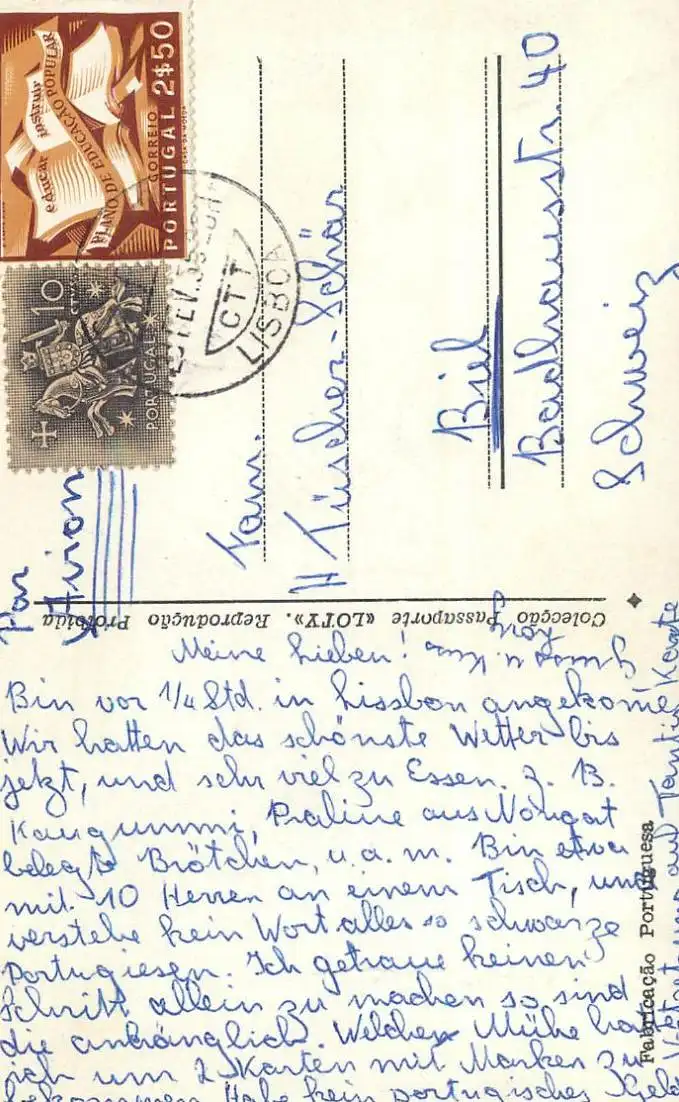 PLANO DE EDUCAÇÃO POPULAR
educar instruir
CORREIO
PORTUGAL 2$50
10
CTVS
PORTUGAL
CTT
LISBOA
Par
Avion
Fam.
Tüscher-Schär
Biel
Badhausstr. 40
Schweiz
Colecção Passaporte «LOTY». Reprodução Proibida
Fabricação Portuguesa
Meine Lieben!
Bin vor 1/4 Std. in Lissbon angekome
Wir hatten das schönste Wetter bis
jetzt, und sehr viel zu Essen z. B.
Kaugummi, Praline aus Nougat
belegte Brötchen, u.a.m. Bin etwa
mit 10 Herren an einem Tisch, und
verstehe kein Wort alles so schwarze
Portugiesen. Ich getraue keinen
Schritt allein zu machen so sind
die anhänglich. Welchen Mühe ha
ich um 2 Karten mit Marken zu
bekommen. Habe kein portugisches Geld
Gruss u. Kuss